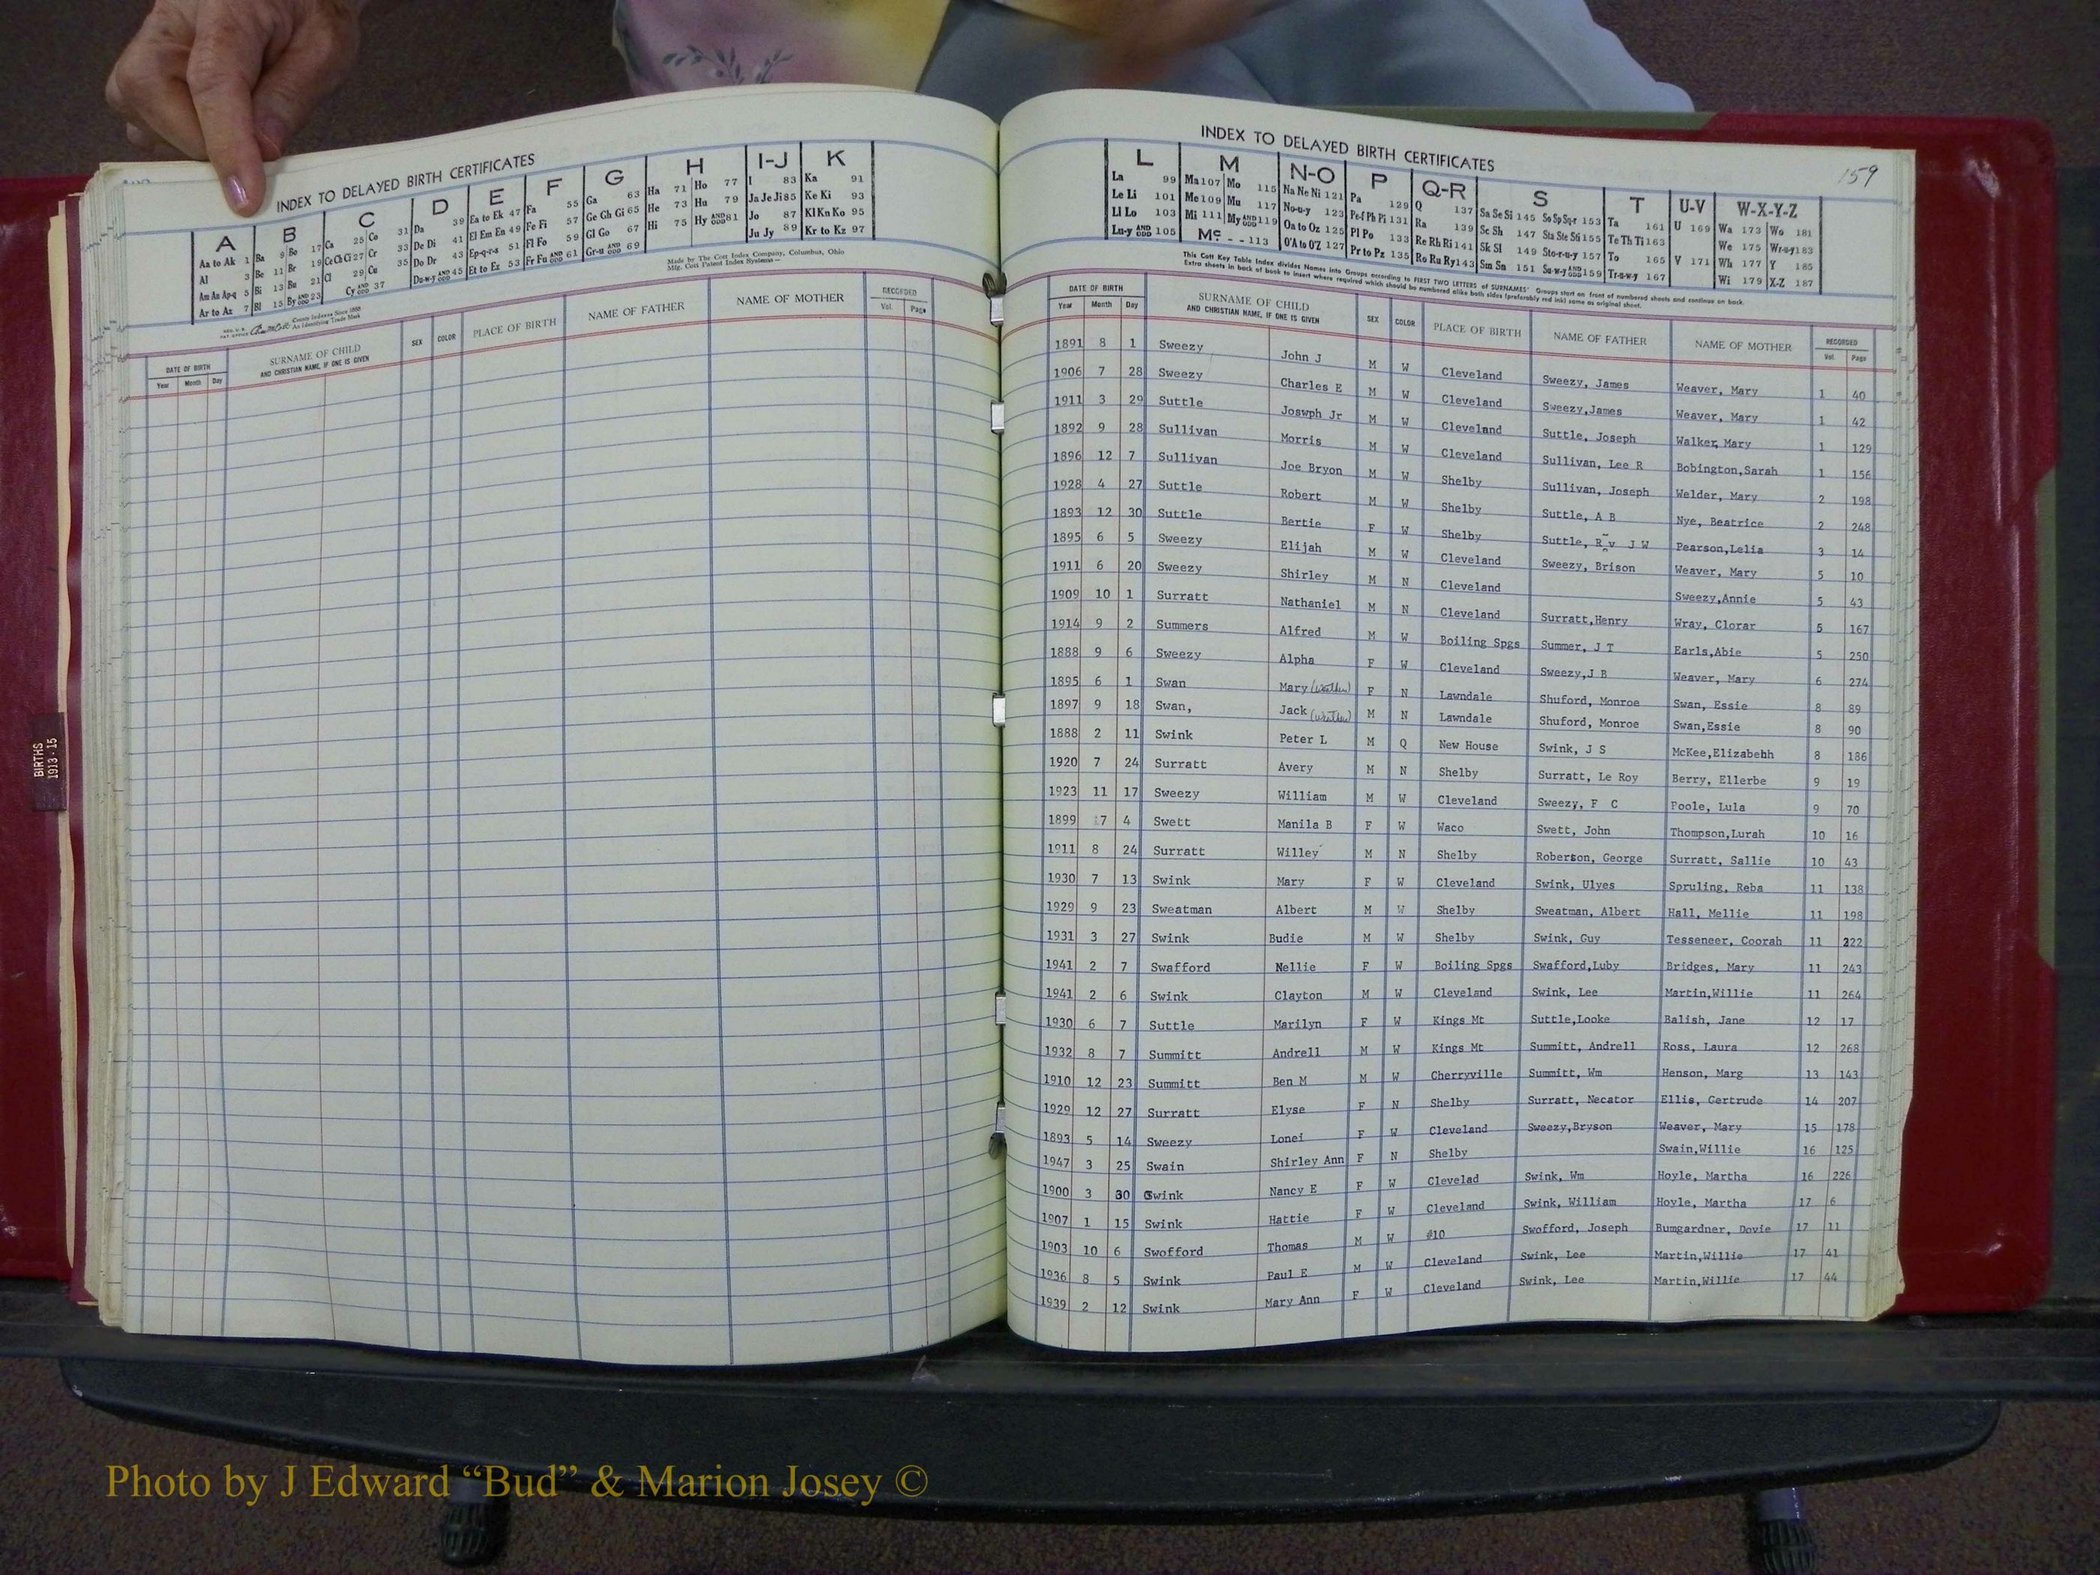 INDEX TO DELAYED BIRTH CERTIFICATES
A B C D E F G H I-J K
Aa to Ak 1 Ba 9 Bo 17 Ca 25 Co 31 Da 39 Ea to Ek 47 Fa 55 Ga 63 Ha 71 Ho 77 I 83 Ka 91
Al 3 Be 11 Br 19 Ce Ch Ci 27 Cr 33 De Di 41 El Em En 49 Fe Fi 57 Ge Gh Gi 65 He 73 Hu 79 Ja Je Ji 85 Ke Ki 93
Am An Ap-q 5 Bi 13 Bu 21 Cl 29 Cu 35 Do Dr 43 Ep-q-r-s 51 Fl Fo 59 Gl Go 67 Hi 75 Hy AND ODD 81 Jo 87 Kl Kn Ko 95
Ar to Az 7 Bl 15 By AND ODD 23 Cy AND ODD 37 Du-w-y AND ODD 45 Et to Ez 53 Fr Fu AND ODD 61 Gr-u AND ODD 69 Ju Jy 89 Kr to Kz 97
Made by The Cott Index Company, Columbus, Ohio
Mfg. Cott Patent Index Systems
County Indexes Since 1888
As Identifying Trade Mark
DATE OF BIRTH SURNAME OF CHILD SEX COLOR PLACE OF BIRTH NAME OF FATHER NAME OF MOTHER RECORDED
Year Month Day AND CHRISTIAN NAME, IF ONE IS GIVEN Vol. Page
BIRTHS
1913-15
INDEX TO DELAYED BIRTH CERTIFICATES
159
L M N-O P Q-R S T U-V W-X-Y-Z
La 99 Ma 107 Mo 115 Na Ne Ni 121 Pa 129 Q 137 Sa Se Si 145 So Sp Sq-r 153 Ta 161 U 169 Wa 173 Wo 181
Le Li 101 Me 109 Mu 117 No-u-y 123 Pe-f Ph Pi 131 Ra 139 Sc Sh 147 Sta Ste Sti 155 Te Th Ti 163 We 175 Wr-u-y 183
Ll Lo 103 Mi 111 My AND ODD 119 Oa to Oz 125 Pl Po 133 Re Rh Ri 141 Sk Sl 149 Sto-r-u-y 157 To 165 V 171 Wh 177 Y 185
Lu-y AND ODD 105 Mc - - 113 O'A to O'Z 127 Pr to Pz 135 Ro Ru Ry 143 Sm Sn 151 Su-w-y AND ODD 159 Tr-u-w-y 167 Wi 179 X-Z 187
This Cott Key Table Index divides Names into Groups according to FIRST TWO LETTERS of SURNAMES. Groups start on front of numbered sheets and continue on back.
Extra sheets in back of book to insert where required which should be numbered alike both sides (preferably red ink) same as original sheet.
DATE OF BIRTH SURNAME OF CHILD SEX COLOR PLACE OF BIRTH NAME OF FATHER NAME OF MOTHER RECORDED
Year Month Day AND CHRISTIAN NAME, IF ONE IS GIVEN Vol. Page
1891 8 1 Sweezy John J M W Cleveland Sweezy, James Weaver, Mary 1 40
1906 7 28 Sweezy Charles E M W Cleveland Sweezy,James Weaver, Mary 1 42
1911 3 29 Suttle Joswph Jr M W Cleveland Suttle, Joseph Walker, Mary 1 129
1892 9 28 Sullivan Morris M W Cleveland Sullivan, Lee R Bobington,Sarah 1 156
1896 12 7 Sullivan Joe Bryon M W Shelby Sullivan, Joseph Welder, Mary 2 198
1928 4 27 Suttle Robert M W Shelby Suttle, A B Nye, Beatrice 2 248
1893 12 30 Suttle Bertie F W Shelby Suttle, Rev J W Pearson,Lelia 3 14
1895 6 5 Sweezy Elijah M W Cleveland Sweezy, Brison Weaver, Mary 5 10
1911 6 20 Sweezy Shirley M N Cleveland Sweezy,Annie 5 43
1909 10 1 Surratt Nathaniel M N Cleveland Surratt,Henry Wray, Clorar 5 167
1914 9 2 Summers Alfred M W Boiling Spgs Summer, J T Earls,Abie 5 250
1888 9 6 Sweezy Alpha F W Cleveland Sweezy,J B Weaver, Mary 6 274
1895 6 1 Swan Mary F N Lawndale Shuford, Monroe Swan, Essie 8 89
1897 9 18 Swan, Jack M N Lawndale Shuford, Monroe Swan,Essie 8 90
1888 2 11 Swink Peter L M Q New House Swink, J S McKee,Elizabehh 8 186
1920 7 24 Surratt Avery M N Shelby Surratt, Le Roy Berry, Ellerbe 9 19
1923 11 17 Sweezy William M W Cleveland Sweezy, F C Poole, Lula 9 70
1899 7 4 Swett Manila B F W Waco Swett, John Thompson,Lurah 10 16
1911 8 24 Surratt Willey M N Shelby Roberson, George Surratt, Sallie 10 43
1930 7 13 Swink Mary F W Cleveland Swink, Ulyes Spruling, Reba 11 138
1929 9 23 Sweatman Albert M W Shelby Sweatman, Albert Hall, Mellie 11 198
1931 3 27 Swink Budie M W Shelby Swink, Guy Tesseneer, Coorah 11 222
1941 2 7 Swafford Nellie F W Boiling Spgs Swafford,Luby Bridges, Mary 11 243
1941 2 6 Swink Clayton M W Cleveland Swink, Lee Martin,Willie 11 264
1930 6 7 Suttle Marilyn F W Kings Mt Suttle,Looke Balish, Jane 12 17
1932 8 7 Summitt Andrell M W Kings Mt Summitt, Andrell Ross, Laura 12 268
1910 12 23 Summitt Ben M M W Cherryville Summitt, Wm Henson, Marg 13 143
1929 12 27 Surratt Elyse F N Shelby Surratt, Necator Ellis, Gertrude 14 207
1893 5 14 Sweezy Lonei F W Cleveland Sweezy,Bryson Weaver, Mary 15 178
1947 3 25 Swain Shirley Ann F N Shelby Swain,Willie 16 125
1900 3 30 Swink Nancy E F W Clevelad Swink, Wm Hoyle, Martha 16 226
1907 1 15 Swink Hattie F W Cleveland Swink, William Hoyle, Martha 17 6
1903 10 6 Swofford Thomas M W #10 Swofford, Joseph Bumgardner, Dovie 17 11
1936 8 5 Swink Paul E M W Cleveland Swink, Lee Martin,Willie 17 41
1939 2 12 Swink Mary Ann F W Cleveland Swink, Lee Martin,Willie 17 44
Photo by J Edward “Bud” & Marion Josey ©